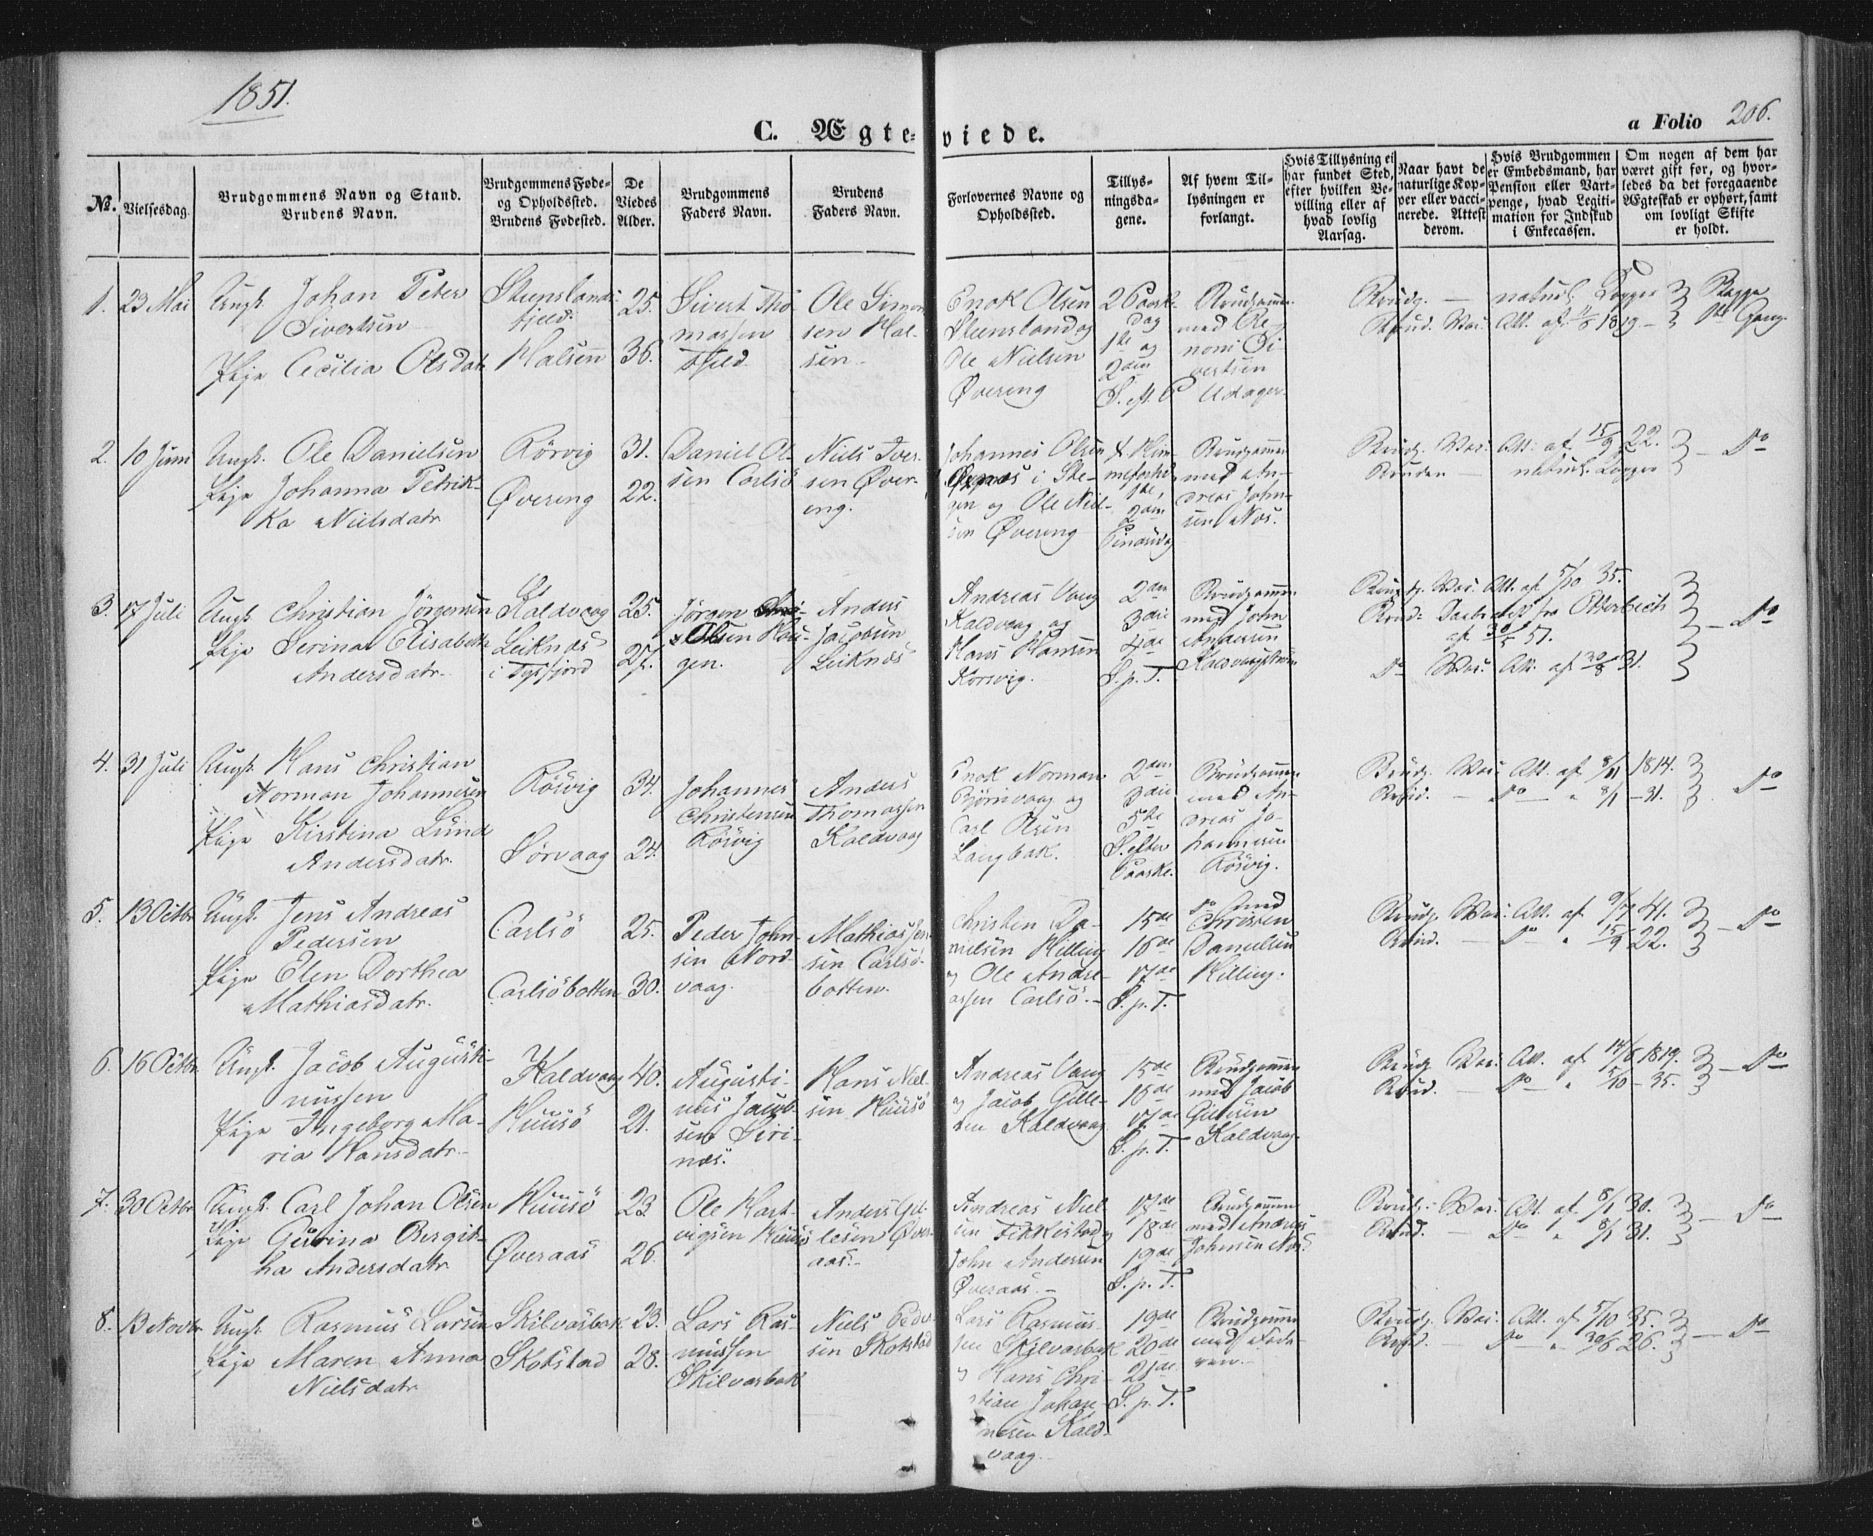 1851.
C. Ægteviede.
a Folio 206.
No. Vielsesdag. Brudgommens Navn og Stand. Brudens Navn. Brudgommens Føde- og Opholdssted. Brudens Fødested. De Viedes Alder. Brudgommens Faders Navn. Brudens Faders Navn. Forlovernes Navne og Opholdssted. Tillysningsdagene. Af hvem Tillysningen er forlangt. Hvis Tillysning ei har fundet Sted, efter hvilken Bevilling eller af hvad lovlig Aarsag. Naar havt de naturlige Kopper eller vaccinerede. Attest derom. Hvis Brudgommen er Embedsmand, har Pension eller Vartpenge, hvad Legitimation for Indskud i Enkecassen. Om nogen af dem har været gift før, og hvorledes da det foregaaende Ægteskab er ophørt, samt om lovligt Skifte er holdt.
1. 23 Mai Ungk. Johan Peter
Sivertsen
Pige Cecilia Olsdatr
Steenslands-
fjeld.
Halsen
25.
36.
Sivert Tho-
massen
Fjeld
Ole Simon-
sen Hal-
sen.
Enok Olsen
Steensland og
Ole Nielsen
Øvereng
2 Paaske-
dag
1ste og
2den
S. eft. P
Brudgommen
Brudg. — naturl. Kopper
Brud. Vac. Att. af 1819
Begge
1ste Gang.
2. 10 Juni Ungk. Ole Danielsen
Pige Johanna Petrik-
ka Nielsdatr
Rörvig
Øvereng
31.
22.
Daniel Ol-
sen Carlsö
Niels Iver-
sen Øver-
eng.
Johannes Olsen
i Ste-
gen og Ole Niel-
sen Øvereng
Brudgommen
med An-
dreas John-
sen Nos.
Brudg. Vac. Att. af 15/9 22.
Bruden — naturl. Kopper
Do
3. 17 Juli Ungk. Christian Jörgensen
Pige Serina Elisabeth
Andersdatr.
Kaldvaag
Leiknæs
i Tysfjord
25.
27.
Jörgen
Olsen Hau-
gen.
Anders
Jacobsen
Leiknæs
Andreas Vaag
Kaldvaag og
Hans Hansen
Korsvig.
2den
3die
4de
S. p. T.
Brudgommen
med John
Andersen
Brudg. Vac. Att. af 5/10 35.
Do Vac. Att. af 30/8 31.
Do
4. 31 Juli Ungk. Hans Christian
Norman Johannesen
Pige Kirstina Lund
Andersdatr.
Rösvig
Sörvaag
34.
24.
Johannes
Christensen
Rösvig
Anders
Thomassen
Kaldvaag
Enok Norman
Bjørnvaag og
Carl Olsen
Langbak.
2den
3die
5te
S. efter
Paaske.
Brudgommen
med An-
dreas Jo-
hannesen
Rösvig.
Brudg. Vac. Att. af 8/11 1814.
Brud. — Do — " 8/1 — 31.
Do
5. 13 Octbr Ungk. Jens Andreas
Pedersen
Pige Elen Dorthea
Mathiasdatr.
Carlsö
Carlsöbotten
25.
30.
Peder John-
sen Nord-
vaag.
Mathias Jen-
sen Carlsö-
botten.
Christen Da-
nielsen Helling
og Ole Andre-
assen Carlsö.
15de
16de
17de
S. p. T.
Do med
Christen
Danielsen
Helling.
Brudg. Vac. Att. af 9/7 41.
Brud. — Do " 15/9 22.
Do
6. 16 Octbr. Ungk. Jacob Augusti-
nussen
Pige Ingeborg Ma-
ria Hansdatr.
Kaldvaag
Huusö
40.
21.
Augusti-
nus Jacob-
sen Siri-
næs.
Hans Niel-
sen Huusö
Andreas Vaag
og Jacob Gille-
sen Kaldvaag
15de
16de
17de
S. p. T.
Brudgommen
med Jacob
Gillesen
Kaldvaag
Brudg. Vac. Att. af 14/6 1819.
Brud. — Do — " 5/10 — 35.
Do
7. 30 Octbr Ungk. Carl Johan Olsen
Pige Gurina Bergit-
ha Andersdatr
Huusö
Øveraas
23
26.
Ole Hart-
vigsen Huusö
Anders Gil-
lesen Øver-
aas.
Andreas Niel-
sen
John Andersen
Øveraas.
17de
18de
19de
S. p. T.
Brudgommen
med Andreas
Johnsen Nos.
Brudg. Vac. Att. af 8/1 30.
Brud. — Do " 8/1 31.
Do
8. 13 Novbr Ungk. Rasmus Larsen
Pige Maren Anna
Nielsdatr
Skilvasbak
Skotstad
23.
28.
Lars Ras-
mussen
Skilvasbak
Niels Peder-
sen Skotstad
Lars Rasmus-
sen Skilvasbak
og Hans Chri-
stian Johan-
nesen Kald-
vaag.
19de
20de
21de
S. p. T.
Brudgommen
med Fade-
ren.
Brudg. Vac. Att. af 5/10 35.
Brud. — Do " 30/6 26.
Do